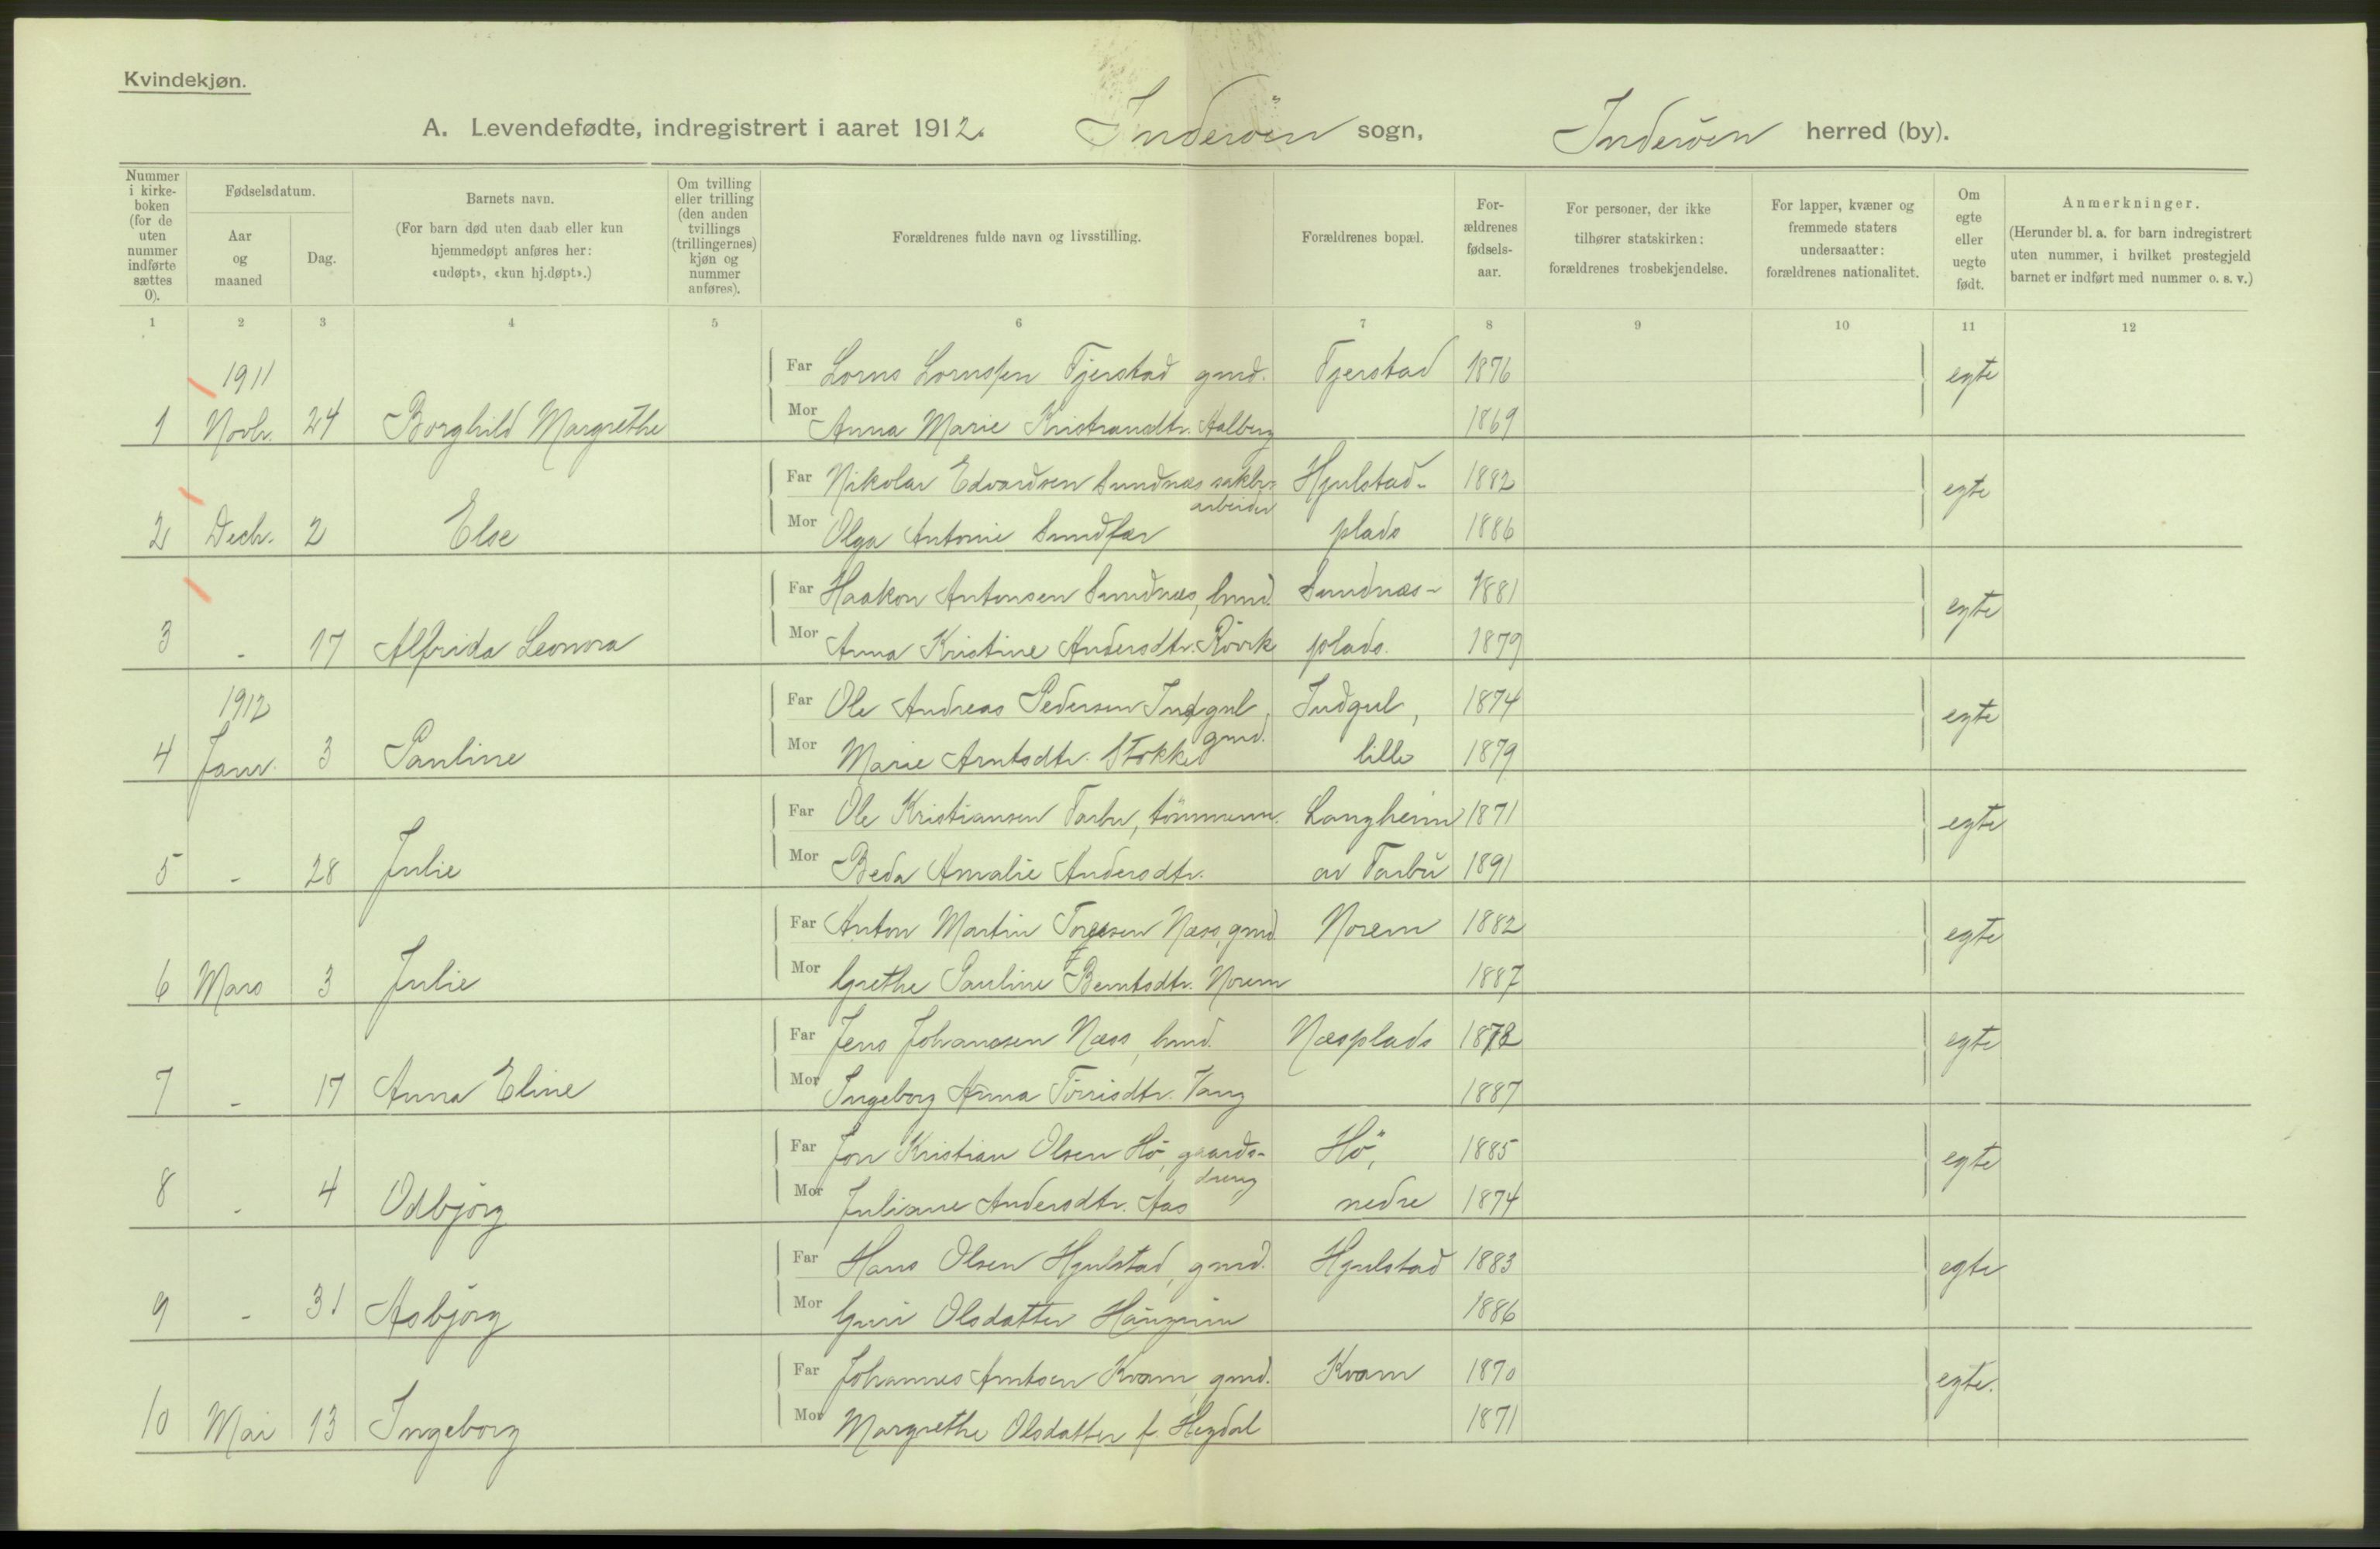 Kvindekjøn.
A. Levendefødte, indregistrert i aaret 1912. Inderöen sogn, Inderöen herred (by).
Nummer i kirke-boken (for de uten nummer indførte sættes 0).
Fødselsdatum.
Aar og maaned
Dag.
Barnets navn.
(For barn død uten daab eller kun hjemmedøpt anføres her: «udøpt», «kun hj.døpt».)
Om tvilling eller trilling (den anden tvillings (trillingernes) kjøn og nummer anføres).
Forældrenes fulde navn og livsstilling.
Forældrenes bopæl.
For-ældrenes fødsels-aar.
For personer, der ikke tilhører statskirken: forældrenes trosbekjendelse.
For lapper, kvæner og fremmede staters undersaatter: forældrenes nationalitet.
Om egte eller uegte født.
Anmerkninger.
(Herunder bl. a. for barn indregistrert uten nummer, i hvilket prestegjeld barnet er indført med nummer o. s. v.)
1 2 3 4 5 6 7 8 9 10 11 12
1911 Far Lorns Lornssen Tjerstad gmd. Tjerstad 1876 egte
1 Novbr. 24 Borghild Margrethe Mor Anna Marie Kristiansdtr. Aalberg 1869
Far Nikolai Edvardsen Sundnæs Hjulstad- 1882 egte
arbeider
2 Decbr. 2 Else Mor Olga Antonie Sundfær plads 1886
Far Haakon Antonsen Sundnæs, hmd. Sundnæs- 1881 egte
3 - 17 Alfrida Leonora Mor Anna Kristine Andersdtr. Rövik plads. 1879
1912 Far Ole Andreas Pedersen Indgul, Indgul, 1874 egte
gmd.
4 Janr. 3 Pauline Mor Marie Arntsdtr. Stokke lille 1879
Far Ole Kristiansen Tarbu, tömmerm. Langheim 1871 egte
5 - 28 Julie Mor Beda Amalie Andersdtr. av Tarbu 1891
Far Anton Martin Torgesen Næss, gmd. Norem 1882 egte
6 Mars 3 Julie Mor Grethe Pauline Berntsdtr. Norem 1887
Far Jens Johanssen Næss, hmd. Næsplads 1872 egte
7 - 17 Anna Eline Mor Ingeborg Anna Törrisdtr. Vang 1887
Far Jon Kristian Olsen Hö, gaards- Hö, 1885 egte
dreng
8 - 4 Odbjörg Mor Juliane Andersdtr. Aas nedre 1874
Far Hans Olsen Hjulstad, gmd. Hjulstad 1883 egte
9 - 31 Asbjörg Mor Guri Olsdatter 1886
Far Johannes Arntsen Kvam, gmd. Kvam 1870 egte.
10 Mai 13 Ingeborg Mor Margrethe Olsdatter f. Hegdal 1871